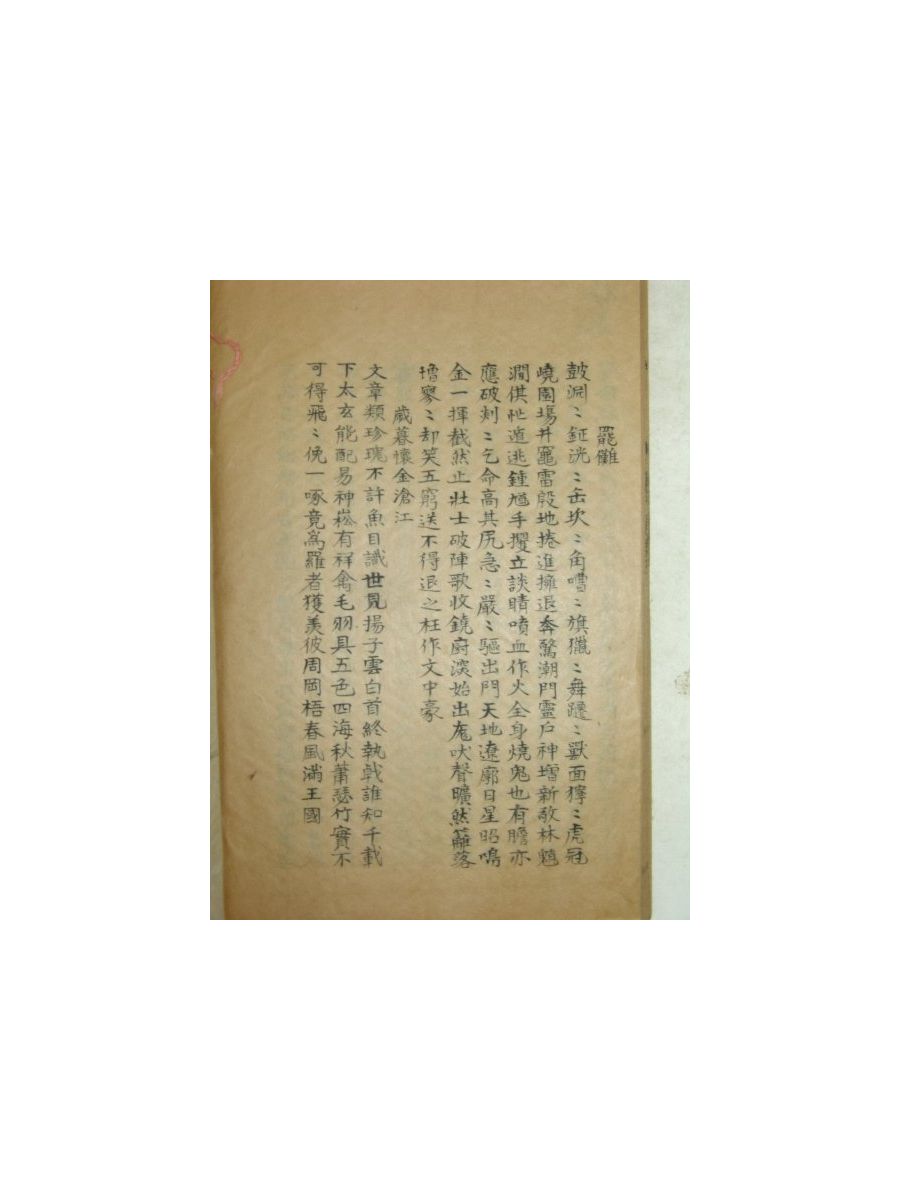 罷儺
鼓淵〻鉦洸〻缶坎〻角嘈〻旗獵〻舞躚〻獸面獰〻虎冠
嶢園塲井竈雷殷地捲進擁退奔驚潮門靈戶神增新敬林魈
澗供祉遁逃鍾馗手攫立談睛噴血作火全身燒鬼也有膽亦
應破剡〻乞命高其尻急〻嚴〻驅出門天地遼廓日星昭鳴
金一揮截然止壯士破陣歌收鐃廚淡始出尨吠聲曠然籬落
撸寥〻却笑五窮送不得退之枉作文中豪
歲暮懷金滄江
文章類珍瑰不許魚目識世見揚子雲白首終執戟誰知千載
下太玄能配易神崧有祥禽毛羽具五色四海秋蕭瑟竹實不
可得飛〻俛一啄竟爲羅者獲羨彼周岡梧春風滿王國